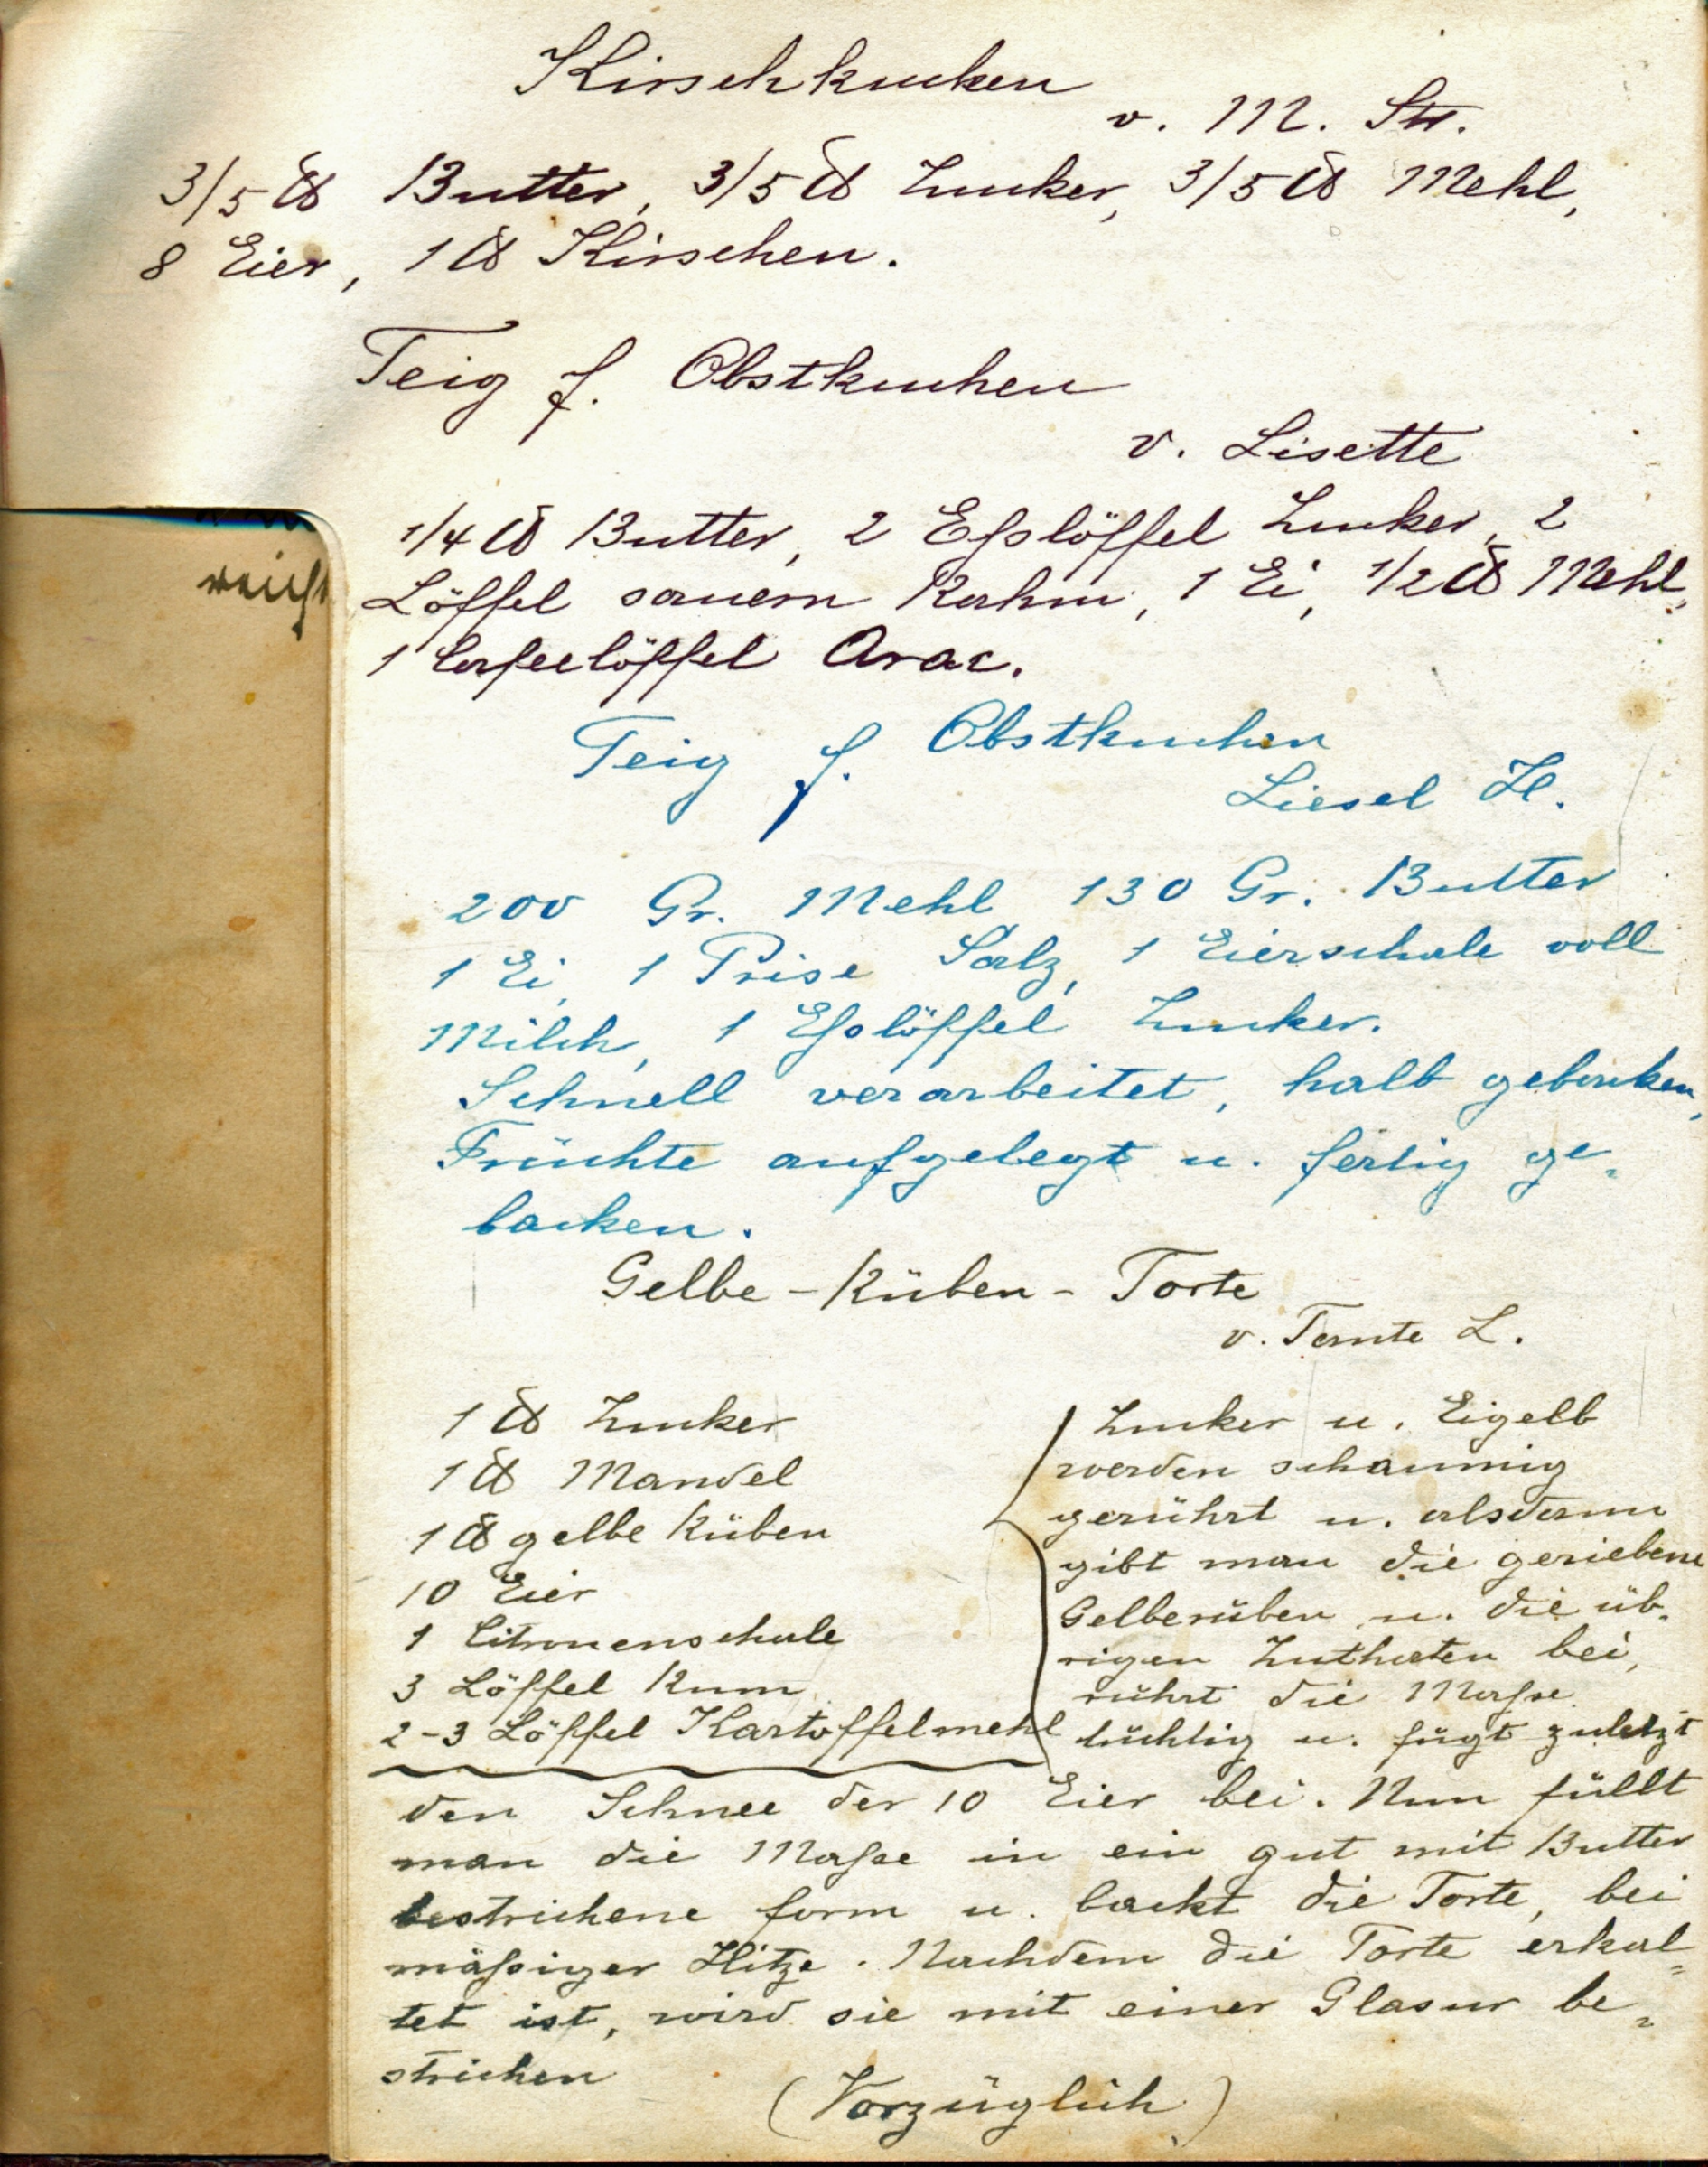 Kirschkuchen
v. M. Str.
3/5 ℔ Butter, 3/5 ℔ Zucker, 3/5 ℔ Mehl,
8 Eier, 1 ℔ Kirschen.
Teig f. Obstkuchen
v. Lisette
1/4 ℔ Butter, 2 Eßlöffel Zucker, 2
Löffel sauern Rahm, 1 Ei, 1/2 ℔ Mehl,
1 Cafeelöffel Arac.
Teig f. Obstkuchen
Liesel H.
200 Gr. Mehl 130 Gr. Butter
1 Ei, 1 Prise Salz, 1 Eierschale voll
Milch, 1 Eßlöffel Zucker.
Schnell verarbeitet, halb gebacken,
Früchte aufgelegt u. fertig ge-
backen.
Gelbe-Rüben-Torte
v. Tante L.
1 ℔ Zucker
1 ℔ Mandel
1 ℔ gelbe Rüben
10 Eier
1 Citronenschale
3 Löffel Rum
2-3 Löffel Kartoffelmehl
Zucker u. Eigelb
werden schaumig
gerührt u. alsdann
gibt man die geriebene
Gelberüben u. die üb-
rigen Zuthaten bei,
rührt die Maße
tüchtig u. fügt zuletzt
den Schnee der 10 Eier bei. Nun füllt
man die Maße in ein gut mit Butter
bestrichene form u. backt die Torte, bei
mäßiger Hitze. Nachdem die Torte erkal-
tet ist, wird sie mit einer Glasur be-
strichen
(Vorzüglich)